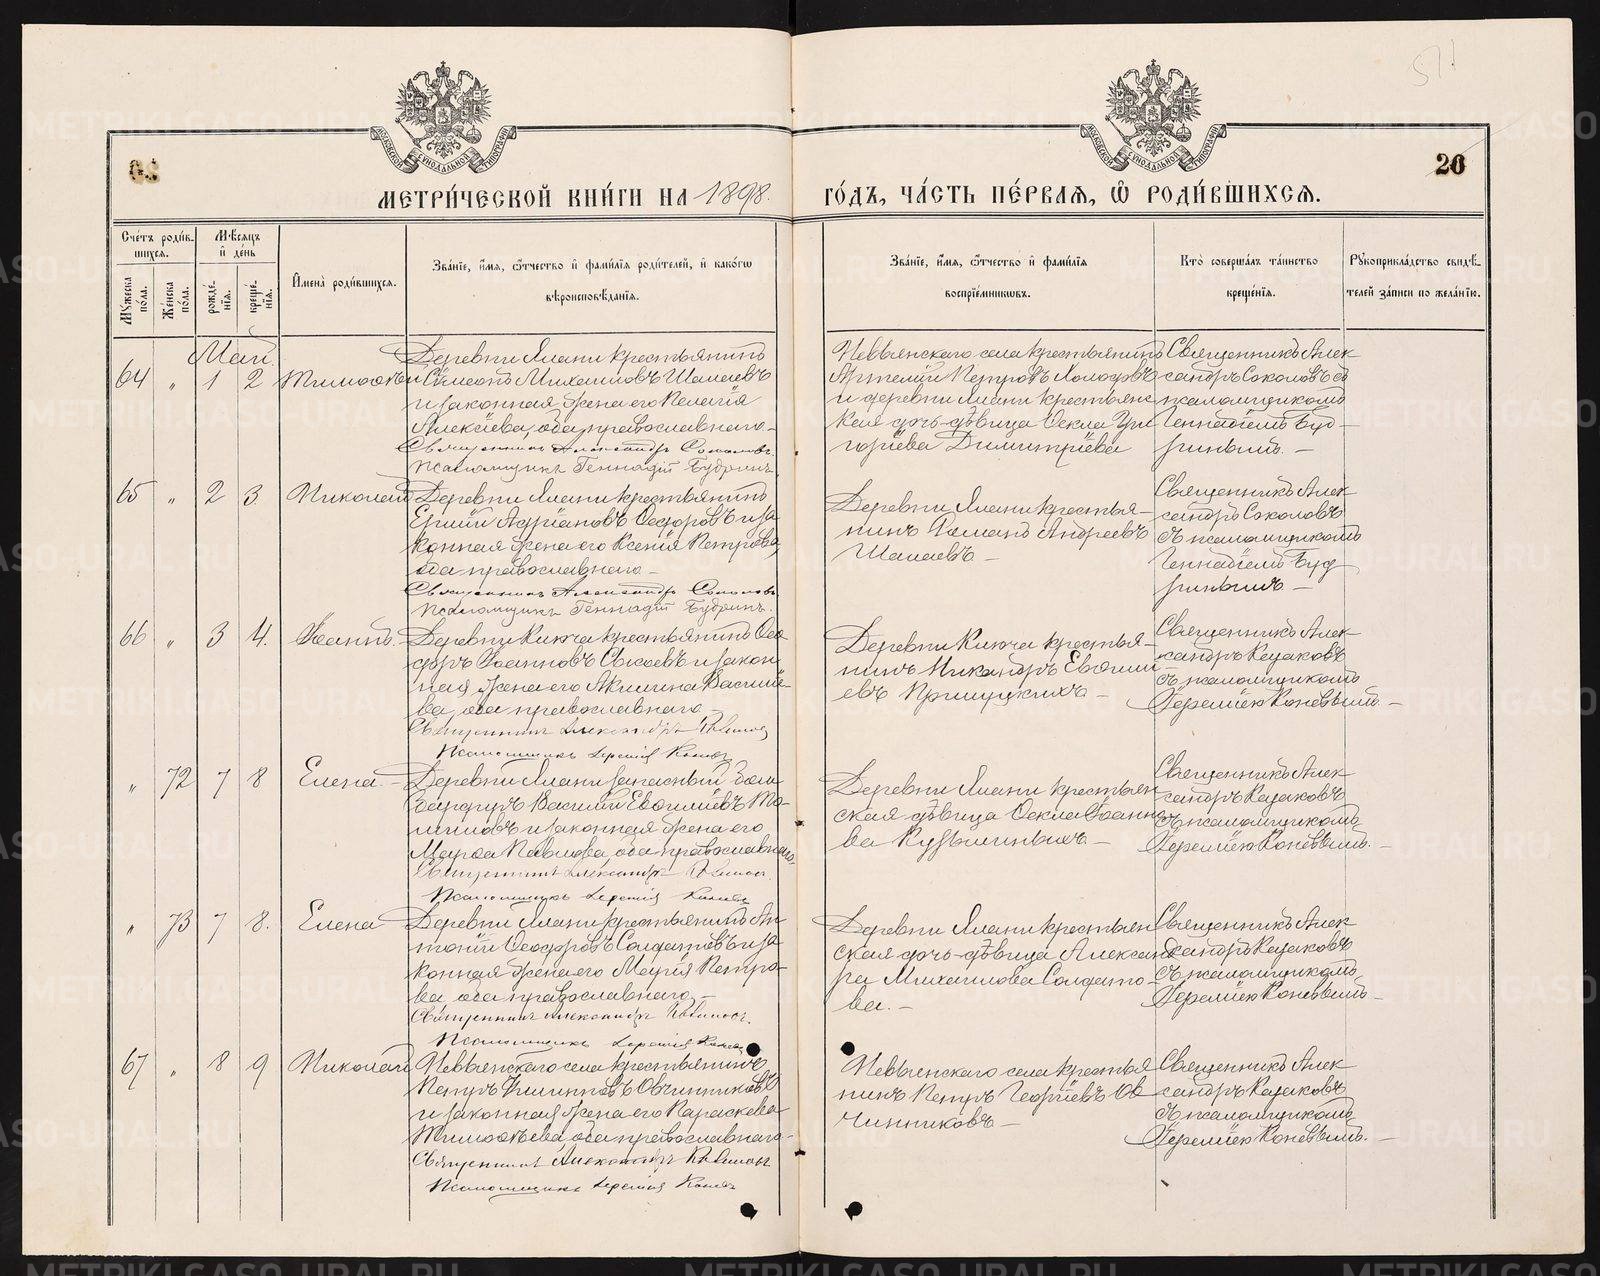 МЕТРИ́ЧЕСКОЙ КНИ́ГИ НА 1898.
ГО́ДЪ, ЧА́СТЬ ПЕ́РВАЯ, Ѡ РОДИ́ВШИХСЯ.
20
Сче́тъ роди́в-
шихся.
Мѣ́сяцъ
и де́нь
Му́жеска по́ла.
Же́нска по́ла.
рожде́нія.
креще́нія.
Имена̀ роди́вшихся.
Зва́ніе, и́мя, ѻ́тчество и фами́лія роди́телей, и како́гѡ
вѣроисповѣ́данія.
Зва́ніе, и́мя, ѻ́тчество и фами́лія
воспріе́мниковъ.
Кто̀ соверша́лъ та́инство
креще́нія.
Рукоприкла́дство свидѣ́-
телей за́писи по жела́нію.
Май.
64 " 1 2 Тимоѳей
Деревни Ялани крестьянинъ
Сѵмеонъ Михаиловъ Шалаевъ
и законная жена его Пелагія
Алексіева, оба православнаго.
Священникъ Александръ Соколовъ.
Псаломщикъ Геннадій Будринъ.
Невьянскаго села крестьянинъ
Артемій Петровъ
и деревни Ялани крестьянс
кая дочь-дѣвица Ѳекла Гри
горіева Димитріева
Священникъ Алек
сандръ Соколовъ съ
псаломщикомъ
Геннадіемъ Буд-
ринымъ. -
65 " 2 3. Николай
Деревни Ялани крестьянинъ
Адріановъ Ѳедоровъ и за
конная жена его Ксенія Петрова,
оба православнаго.
Священникъ Александръ Соколовъ
Псаломщикъ Геннадій Будринъ.
Деревни Ялани крестья-
нинъ Романъ Андреевъ
Шалаевъ -
Священникъ Алек
сандръ Соколовъ
съ псаломщикомъ
Геннадіемъ Буд
ринымъ -
66 " 3 4. Іоаннъ.
Деревни Ключа крестьянинъ Ѳео
доръ Іоанновъ Сысоевъ и закон
ная жена его Акилина Василіе-
ва, оба православнаго
Священникъ Александръ Казаковъ
Псаломщикъ Іеремія Коневъ
Деревни Ключа крестья-
нинъ Никандръ Евѳимі-
евъ Примуцкихъ -
Священникъ Алек-
сандръ Казаковъ
съ псаломщикомъ
Іереміею Коневымъ. -
" 72 7 8 Елена. -
Деревни Ялани запасный бом
бардиръ Василій Евѳиміевъ То-
миловъ и законная жена его
Марѳа Павлова, оба православнаго,
Священникъ Александръ Казаковъ
Псаломщикъ Іеремія Коневъ
Деревни Ялани крестьян
ская дѣвица Ѳекла Іоанно
ва Кузьминыхъ -
Священникъ Алек
сандръ Казаковъ
съ псаломщикомъ
Іереміею Коневымъ. -
" 73 7 8. Елена
Деревни Ялани крестьянинъ Ан
тоній Ѳеодоровъ Солдатовъ и за
конная жена его Марія Петро-
ва, оба православнаго. -
Священникъ Александръ Казаковъ.
Псаломщикъ Іеремія Коневъ
Деревни Ялани крестьян
ская дочь-дѣвица Александ
ра Михаилова Солдато-
ва. -
Священникъ Алек
сандръ Казаковъ
съ псаломщикомъ
Іереміею Коневымъ -
67 " 8 9 Николай
Невьянскаго села крестьянинъ
Петръ Филипповъ Овчинниковъ
и законная жена его Параскева
Тимоѳеева, оба православнаго -
Священникъ Александръ Казаковъ
Псаломщикъ Іеремія Коневъ
Невьянскаго села крестья
нинъ Петръ Георгіевъ Ов
чинниковъ -
Священникъ Алек
сандръ Казаковъ
съ псаломщикомъ
Іереміею Коневымъ. -
METRIKI.GASO-URAL.RU